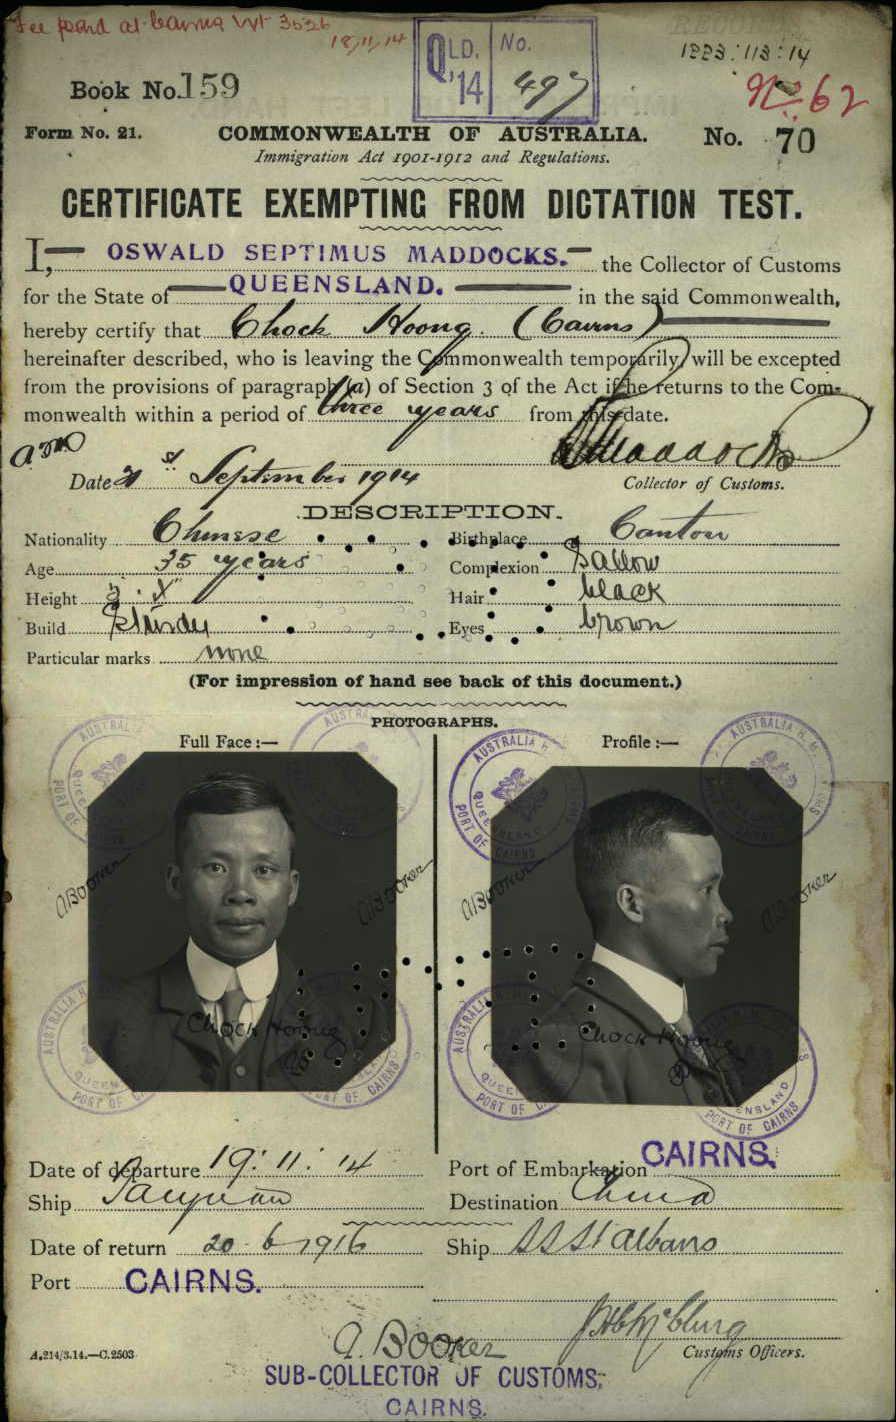 Fee paid at Cairns
18/11/14
QLD. No.
'14 497
1223:113:14
No 62
Book No. 159
Form No. 21.
COMMONWEALTH OF AUSTRALIA.
No. 70
Immigration Act 1901-1912 and Regulations.
CERTIFICATE EXEMPTING FROM DICTATION TEST.
I, OSWALD SEPTIMUS MADDOCKS. the Collector of Customs
for the State of QUEENSLAND. in the said Commonwealth,
hereby certify that Chock Hoong. (Cairns)
hereinafter described, who is leaving the Commonwealth temporarily, will be excepted
from the provisions of paragraph (a) of Section 3 of the Act if he returns to the Com-
monwealth within a period of three years from this date.
Maddocks
Date 21st September 1914
Collector of Customs.
DESCRIPTION.
Nationality Chinese Birthplace Canton
Age 35 years Complexion Sallow
Height Hair black
Build Sturdy Eyes brown
Particular marks none
(For impression of hand see back of this document.)
PHOTOGRAPHS.
Full Face :— Profile :—
A Booker A Booker A Booker A Booker
Chock Hoong Chock Hoong
Date of departure 19: 11: 14 Port of Embarkation CAIRNS.
Ship Taiyuan Destination China
Date of return 20-6-1916 Ship SS St Albans
Port CAIRNS.
A. Booker
A.214/3.14.—C.2503.
Customs Officers.
SUB-COLLECTOR OF CUSTOMS,
CAIRNS.